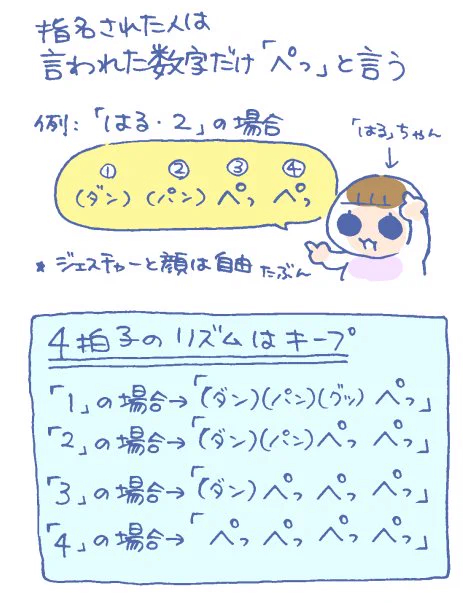 指名された人は
言われた数字だけ「ぺっ」と言う
例:「はる・2」の場合
「はる」ちゃん
① ② ③ ④
(ダン) (パン) ぺっ ぺっ
* ジェスチャーと顔は自由 たぶん
4拍子のリズムはキープ
「1」の場合→「(ダン)(パン)(グッ) ぺっ」
「2」の場合→「(ダン)(パン) ぺっ ぺっ」
「3」の場合→「(ダン) ぺっ ぺっ ぺっ」
「4」の場合→「ぺっ ぺっ ぺっ ぺっ」